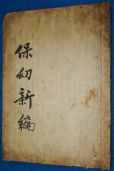 保幼新編